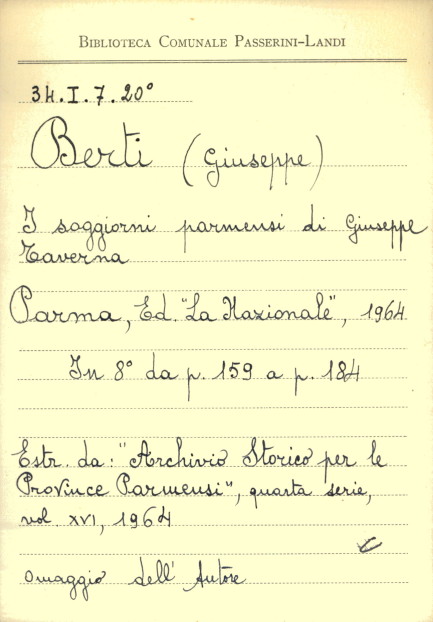 BIBLIOTECA COMUNALE PASSERINI-LANDI
34.I.7.20°
Berti (Giuseppe)
I soggiorni parmensi di Giuseppe
Taverna
Parma, Ed. "La Nazionale", 1964
In 8° da p. 159 a p. 184
Estr. da: "Archivio Storico per le
Province Parmensi", quarta serie,
vol. XVI, 1964
omaggio dell' Autore